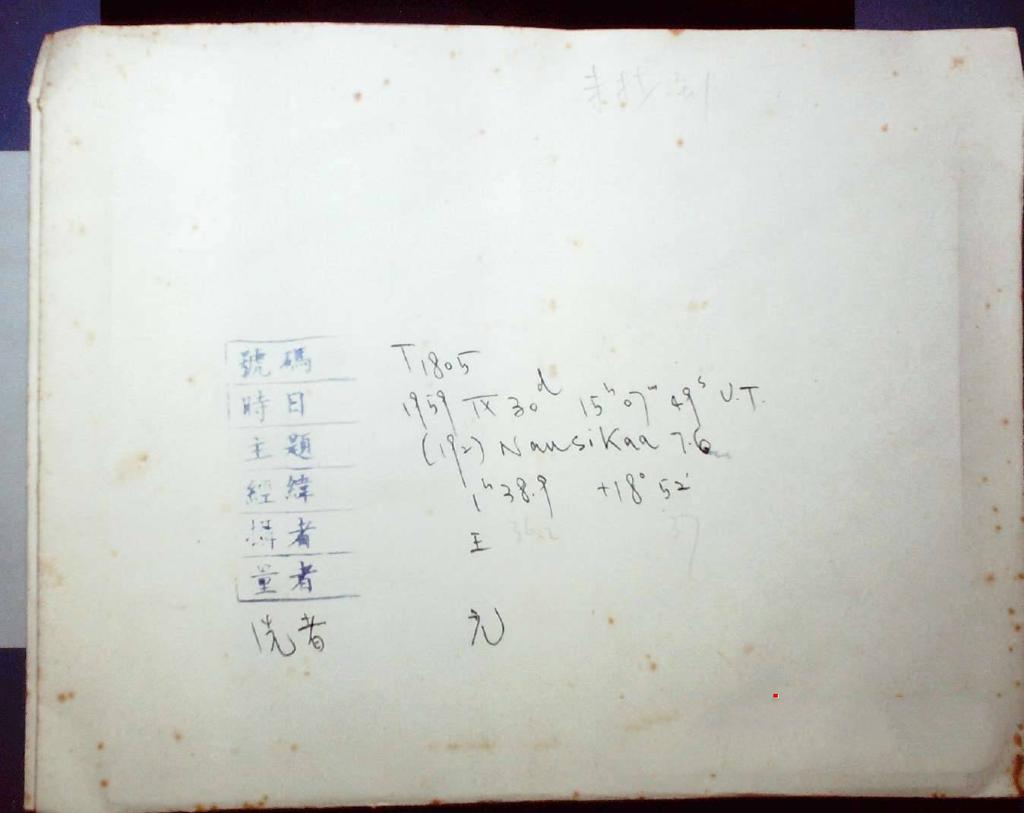 號碼 T1805
時日 1959 IX 30ᵈ 15ʰ 07ᵐ 49ˢ U.T.
主題 (192) Nausikaa 7.6
經緯 1ʰ38.9 +18°52'
攝者 王
量者
洗者 元